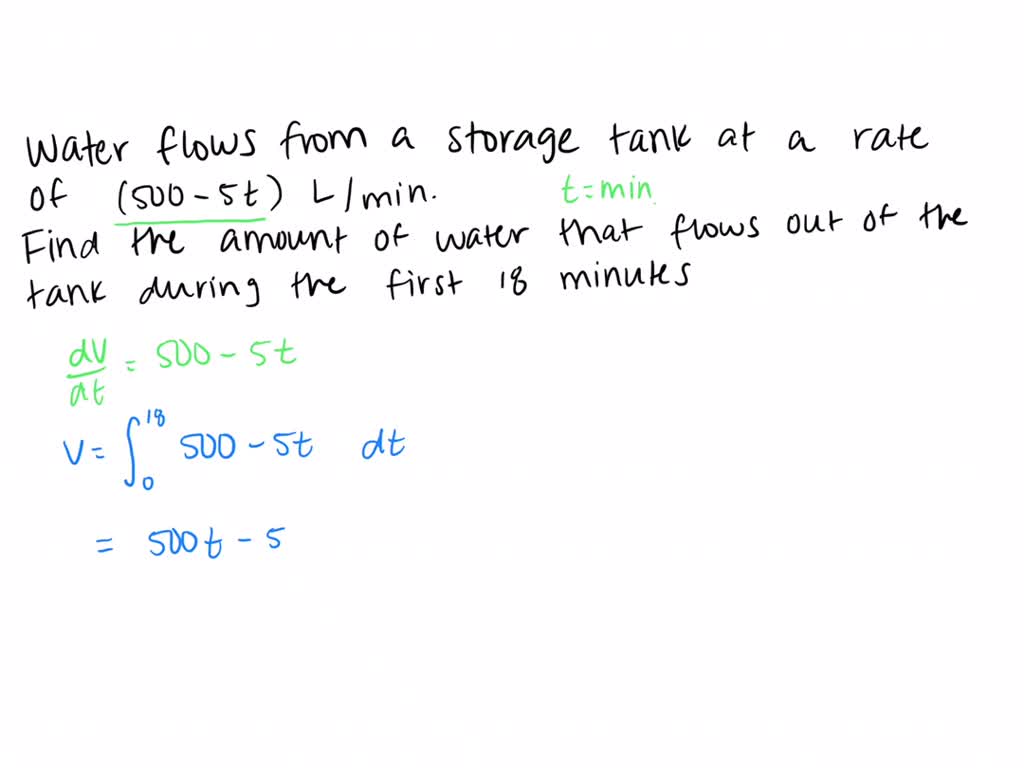 Water flows from a storage tank at a rate
of (500 - 5t) L/min. t = min.
Find the amount of water that flows out of the
tank during the first 18 minutes
dV/dt = 500 - 5t
V = ∫₀¹⁸ 500 - 5t dt
= 500t - 5